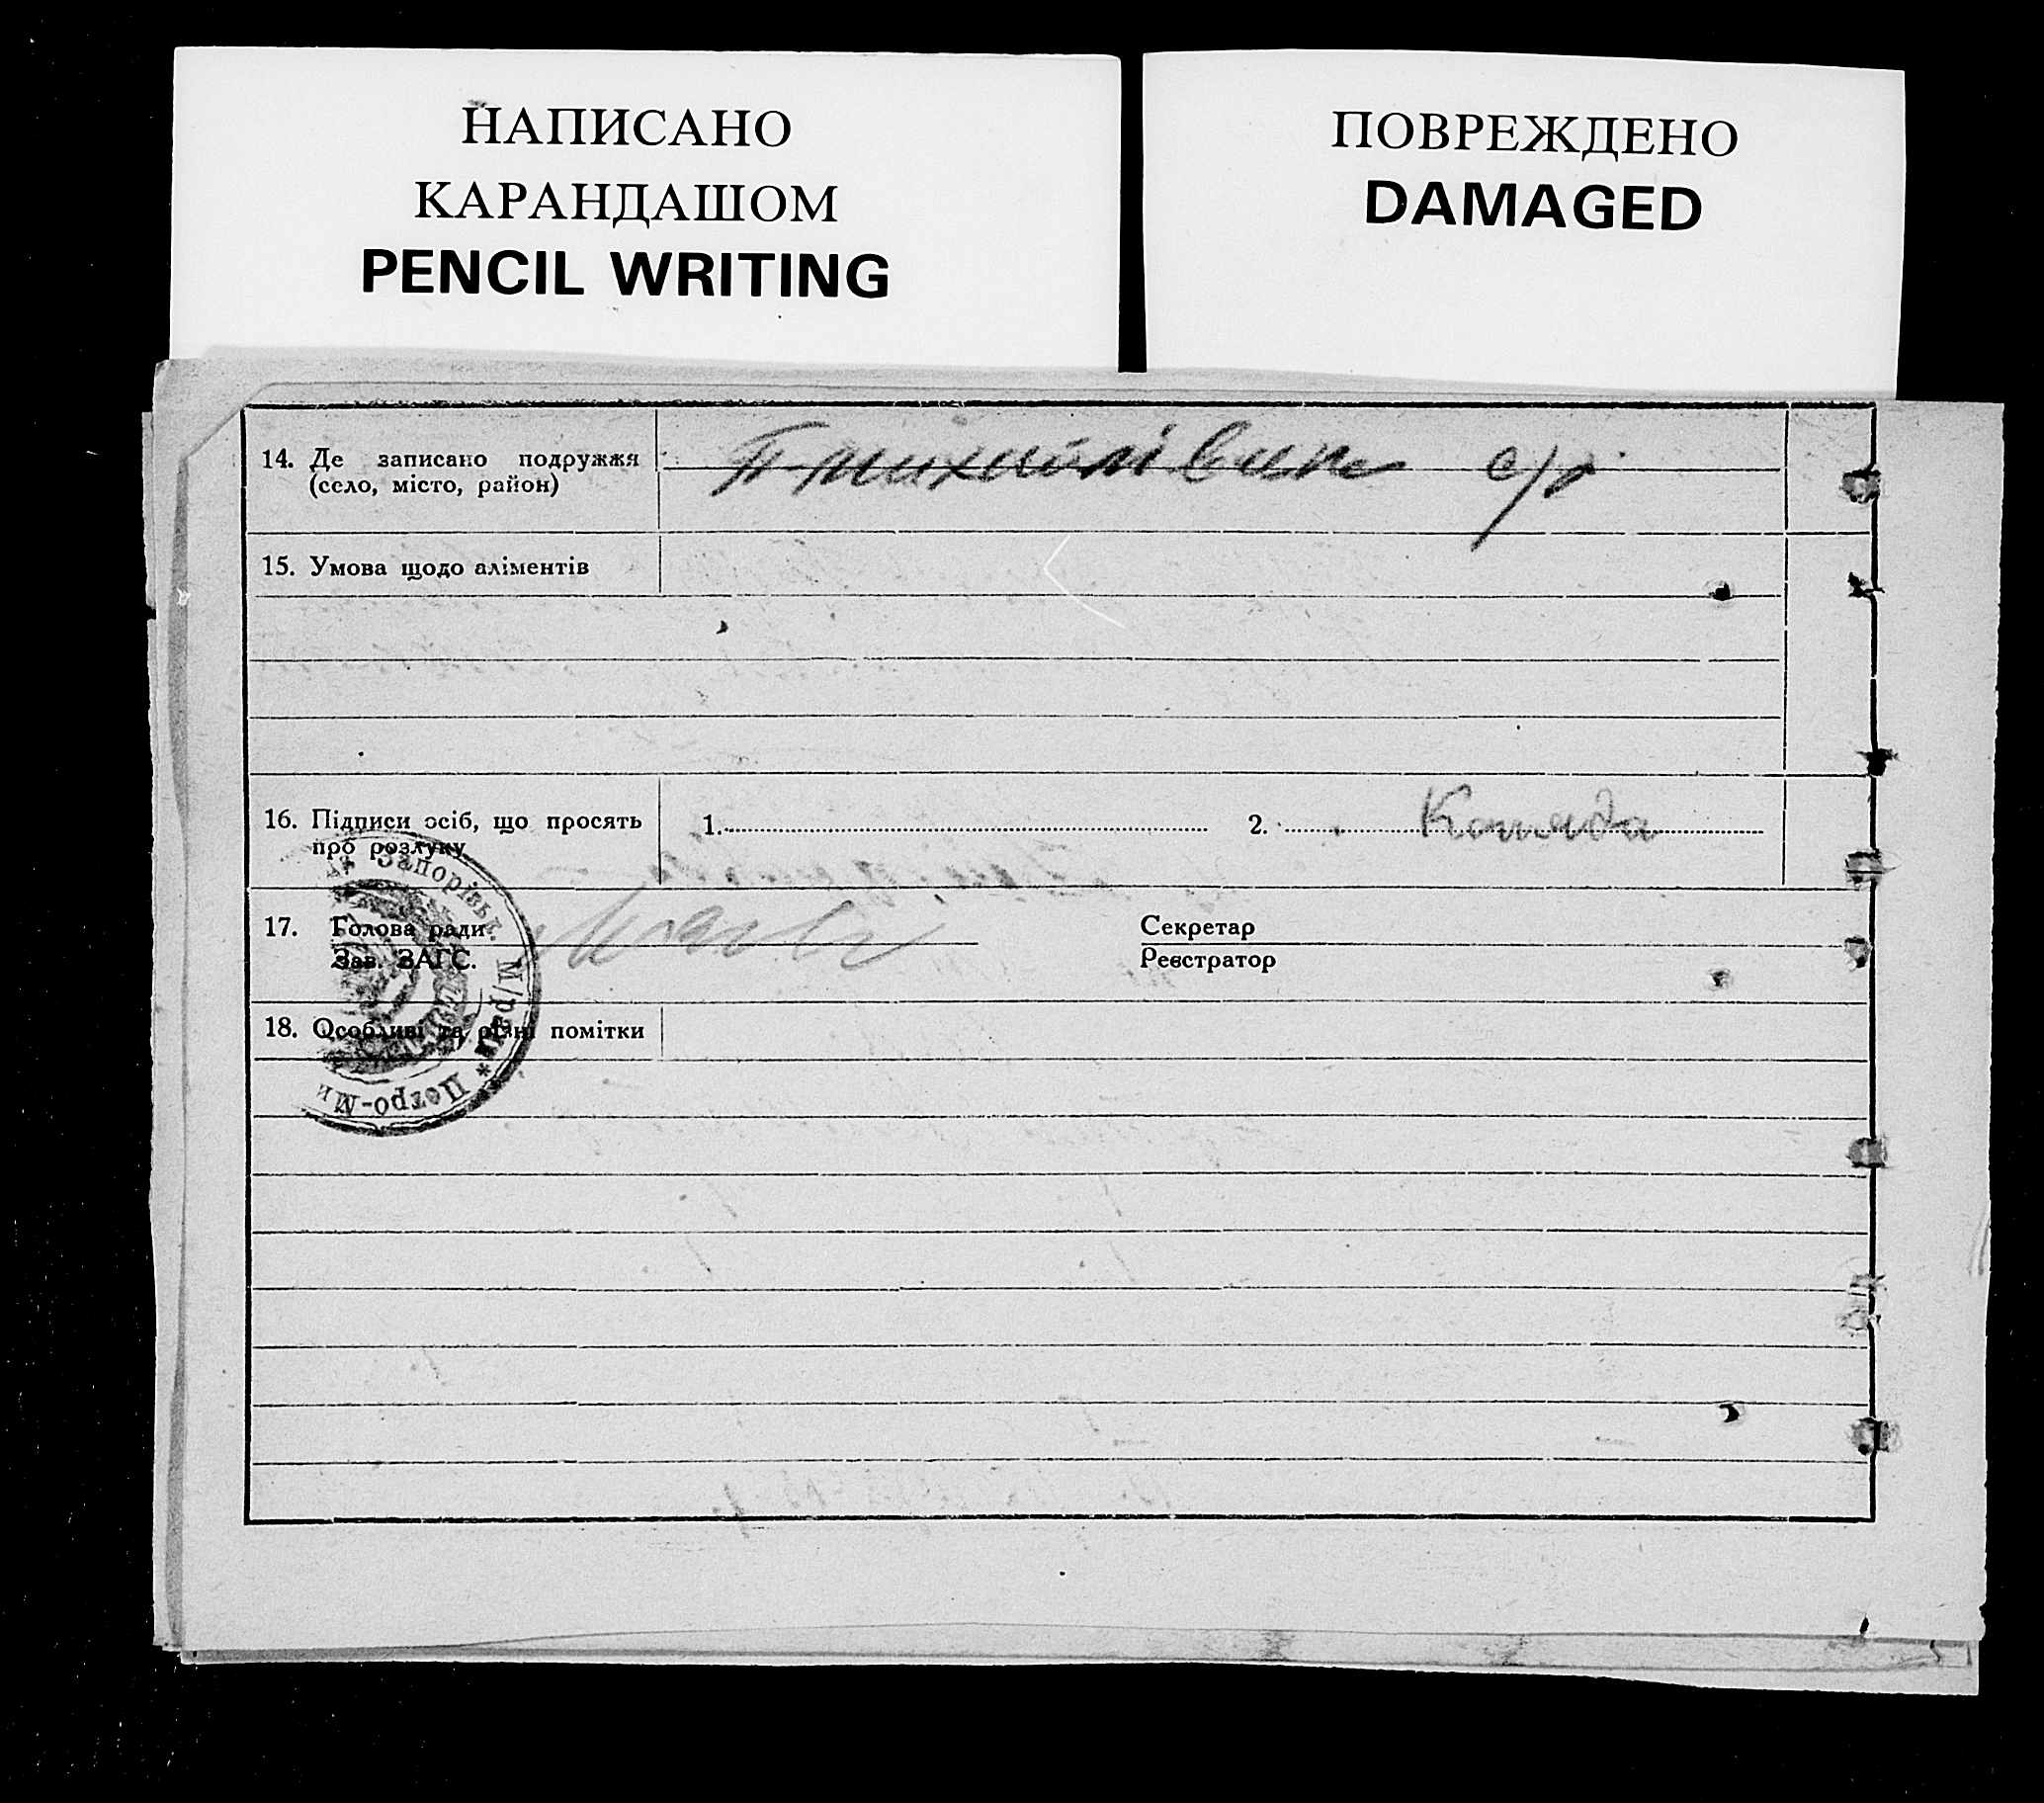 НАПИСАНО
КАРАНДАШОМ
PENCIL WRITING
ПОВРЕЖДЕНО
DAMAGED
14. Де записано подружжя П-михайлівск с/р.
(село, місто, район)
15. Умова щодо аліментів
16. Підписи осіб, що просять 1. 2.
про розлуку
17. Голова ради Секретар
Зав. ЗАГС. Реєстратор
18. Особливі та різні помітки
Запорізьк. М/ради * Петро-Ми